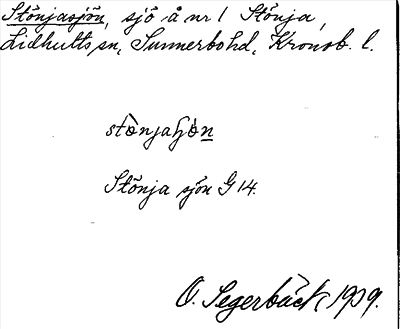 Stönjasjön, sjö å nr 1 Stönja,
Lidhults sn, Sunnerbo hd, Kronob. l.
stònjaɧòn
Stönja sjön G 14.
O. Segerbäck 1919.